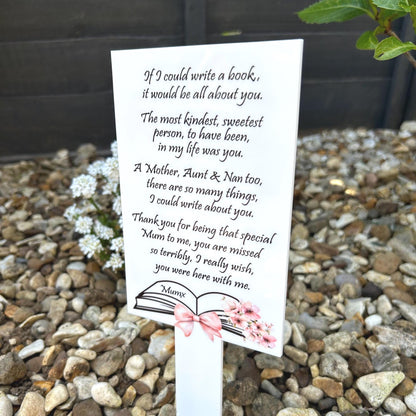 If I could write a book,,
it would be all about you.
The most kindest, sweetest
person, to have been,
in my life was you.
A Mother, Aunt & Nan too,
there are so many things,
I could write about you.
Thank you for being that special
Mum to me, you are missed
so terribly, I really wish,
you were here with me.
Mumx